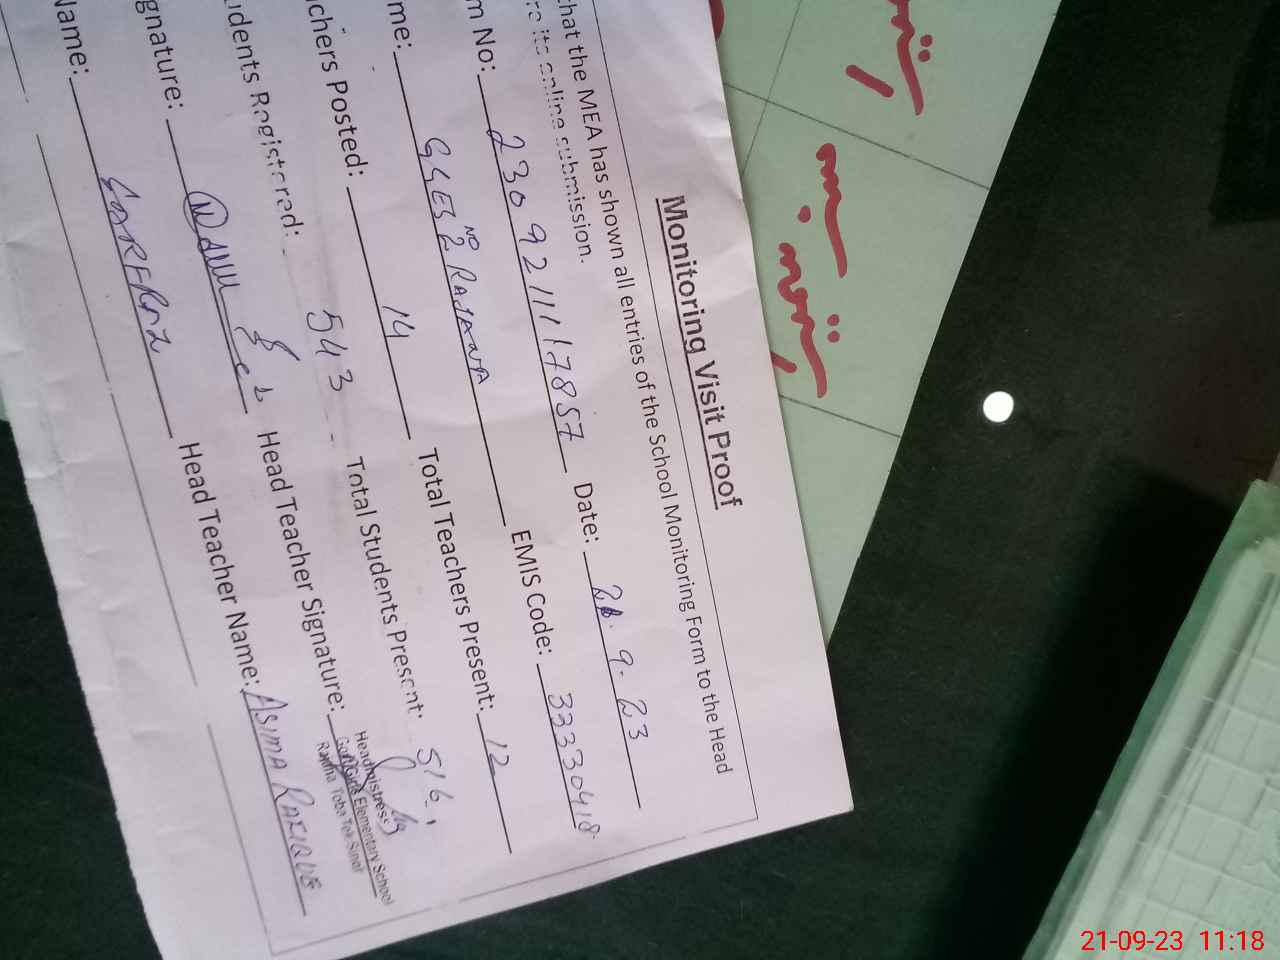 Monitoring Visit Proof
that the MEA has shown all entries of the School Monitoring Form to the Head
its online submission.
m No: 230921117857 Date: 9.23
me: GGES NO 2 RAJANA EMIS Code: 33330418
chers Posted: 14 Total Teachers Present: 12
udents Registered: 543 Total Students Present: 516
gnature: Head Teacher Signature:
Headmistress
Govt Girls Elementary School
Rajana Toba Tek Singh
Name: Head Teacher Name: ASIMA RAFIQUE
21-09-23 11:18